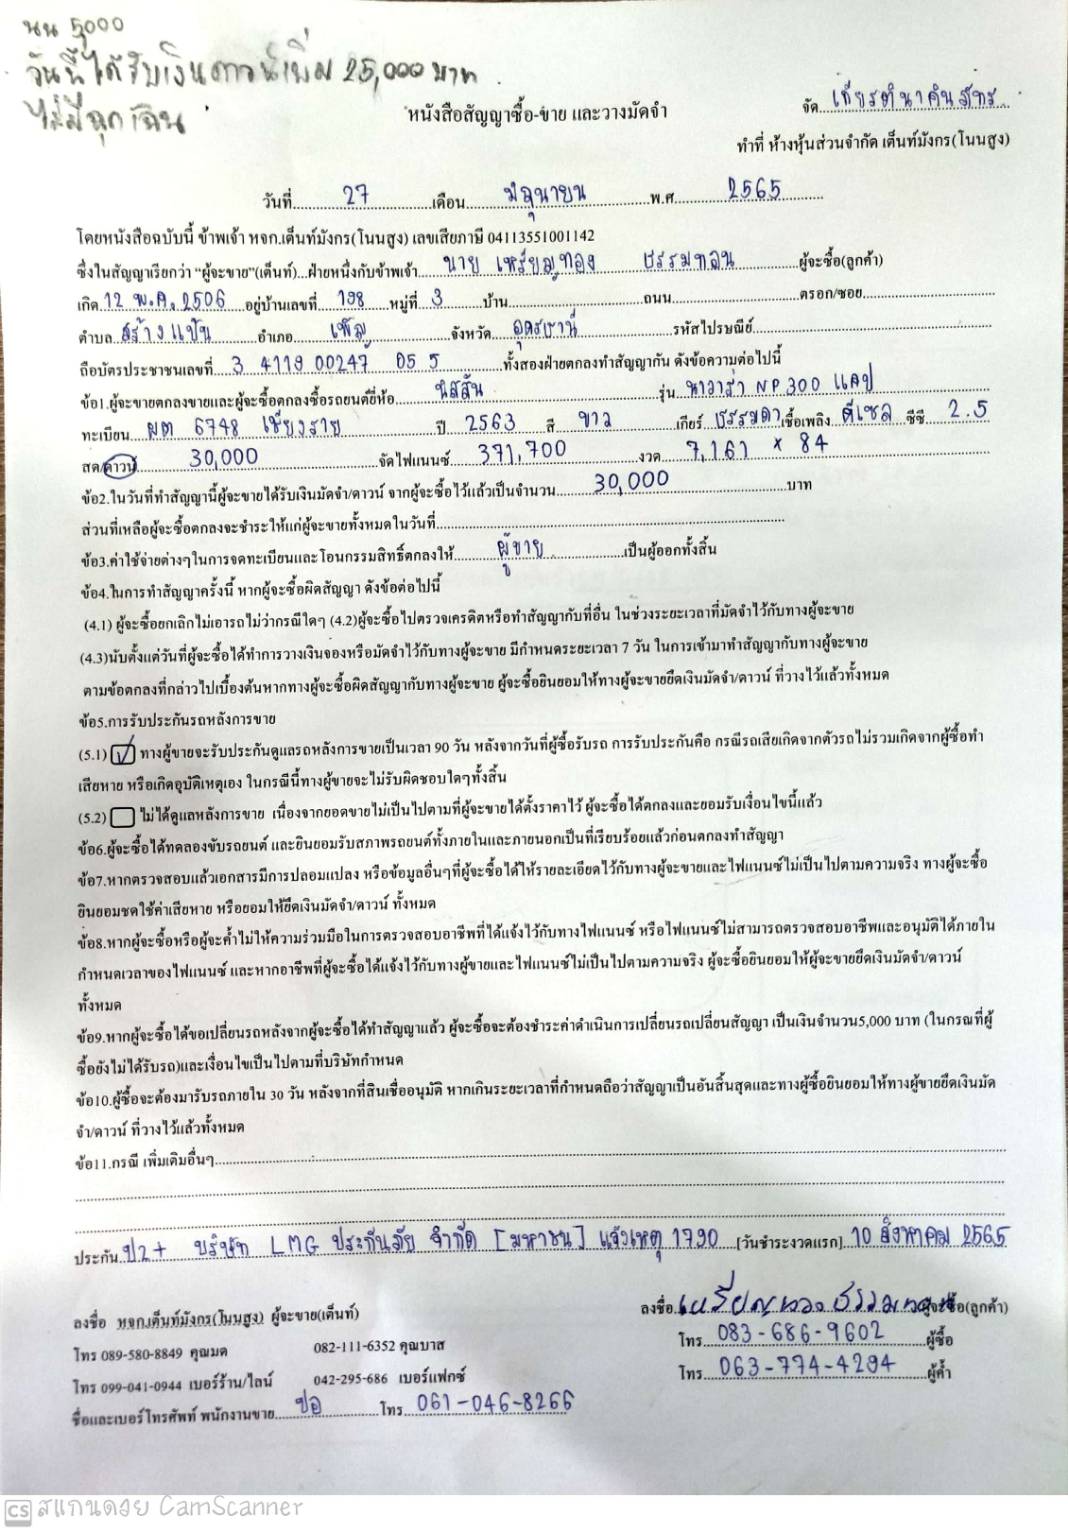 นน 5,000
วันนี้ได้รับเงินดาวน์เพิ่ม 25,000 บาท
ไม่มีฉุกเฉิน
จัด เกียรตินาคินภัทร
หนังสือสัญญาซื้อ-ขาย และวางมัดจำ
ทำที่ ห้างหุ้นส่วนจำกัด เต็นท์มังกร(โนนสูง)
วันที่ 27 เดือน มิถุนายน พ.ศ 2565
โดยหนังสือฉบับนี้ ข้าพเจ้า หจก.เต็นท์มังกร(โนนสูง) เลขเสียภาษี 04113551001142
ซึ่งในสัญญาเรียกว่า "ผู้จะขาย"(เต็นท์)...ฝ่ายหนึ่งกับข้าพเจ้า นาย เหรียญทอง ธรรมทอน ผู้จะซื้อ(ลูกค้า)
เกิด 12 พ.ค. 2506 อยู่บ้านเลขที่ 198 หมู่ที่ 3 บ้าน ถนน ตรอก/ซอย
ตำบล สร้างแป้น อำเภอ เพ็ญ จังหวัด อุดรธานี รหัสไปรษณีย์
ถือบัตรประชาชนเลขที่ 3 4119 00247 05 5 ทั้งสองฝ่ายตกลงทำสัญญากัน ดังข้อความต่อไปนี้
ข้อ1.ผู้จะขายตกลงขายและผู้จะซื้อตกลงซื้อรถยนต์ยี่ห้อ นิสสัน รุ่น นาวาร่า NP 300 แคป
ทะเบียน ผต 6748 เชียงราย ปี 2563 สี ขาว เกียร์ ธรรมดา เชื้อเพลิง ดีเซล ซีซี 2.5
สด/ดาวน์ 30,000 จัดไฟแนนซ์ 371,700 งวด 7,161 × 84
ข้อ2.ในวันที่ทำสัญญานี้ผู้จะขายได้รับเงินมัดจำ/ดาวน์ จากผู้จะซื้อไว้แล้วเป็นจำนวน 30,000 บาท
ส่วนที่เหลือผู้จะซื้อตกลงจะชำระให้แก่ผู้จะขายทั้งหมดในวันที่
ข้อ3.ค่าใช้จ่ายต่างๆในการจดทะเบียนและโอนกรรมสิทธิ์ตกลงให้ ผู้ขาย เป็นผู้ออกทั้งสิ้น
ข้อ4.ในการทำสัญญาครั้งนี้ หากผู้จะซื้อผิดสัญญา ดังข้อต่อไปนี้
(4.1) ผู้จะซื้อยกเลิกไม่เอารถไม่ว่ากรณีใดๆ (4.2)ผู้จะซื้อไปตรวจเครดิตหรือทำสัญญากับที่อื่น ในช่วงระยะเวลาที่มัดจำไว้กับทางผู้จะขาย
(4.3)นับตั้งแต่วันที่ผู้จะซื้อได้ทำการวางเงินจองหรือมัดจำไว้กับทางผู้จะขาย มีกำหนดระยะเวลา 7 วัน ในการเข้ามาทำสัญญากับทางผู้จะขาย
ตามข้อตกลงที่กล่าวไปเบื้องต้นหากทางผู้จะซื้อผิดสัญญากับทางผู้จะขาย ผู้จะซื้อยินยอมให้ทางผู้จะขายยึดเงินมัดจำ/ดาวน์ ที่วางไว้แล้วทั้งหมด
ข้อ5.การรับประกันรถหลังการขาย
(5.1) ✓ ทางผู้ขายจะรับประกันดูแลรถหลังการขายเป็นเวลา 90 วัน หลังจากวันที่ผู้ซื้อรับรถ การรับประกันคือ กรณีรถเสียเกิดจากตัวรถไม่รวมเกิดจากผู้ซื้อทำ
เสียหาย หรือเกิดอุบัติเหตุเอง ในกรณีนี้ทางผู้ขายจะไม่รับผิดชอบใดๆทั้งสิ้น
(5.2) ไม่ได้ดูแลหลังการขาย เนื่องจากยอดขายไม่เป็นไปตามที่ผู้จะขายได้ตั้งราคาไว้ ผู้จะซื้อได้ตกลงและยอมรับเงื่อนไขนี้แล้ว
ข้อ6.ผู้จะซื้อได้ทดลองขับรถยนต์ และยินยอมรับสภาพรถยนต์ทั้งภายในและภายนอกเป็นที่เรียบร้อยแล้วก่อนตกลงทำสัญญา
ข้อ7.หากตรวจสอบแล้วเอกสารมีการปลอมแปลง หรือข้อมูลอื่นๆที่ผู้จะซื้อได้ให้รายละเอียดไว้กับทางผู้จะขายและไฟแนนซ์ไม่เป็นไปตามความจริง ทางผู้จะซื้อ
ยินยอมชดใช้ค่าเสียหาย หรือยอมให้ยึดเงินมัดจำ/ดาวน์ ทั้งหมด
ข้อ8.หากผู้จะซื้อหรือผู้จะค้ำไม่ให้ความร่วมมือในการตรวจสอบอาชีพที่ได้แจ้งไว้กับทางไฟแนนซ์ หรือไฟแนนซ์ไม่สามารถตรวจสอบอาชีพและอนุมัติได้ภายใน
กำหนดเวลาของไฟแนนซ์ และหากอาชีพที่ผู้จะซื้อได้แจ้งไว้กับทางผู้ขายและไฟแนนซ์ไม่เป็นไปตามความจริง ผู้จะซื้อยินยอมให้ผู้จะขายยึดเงินมัดจำ/ดาวน์
ทั้งหมด
ข้อ9.หากผู้จะซื้อได้ขอเปลี่ยนรถหลังจากผู้จะซื้อได้ทำสัญญาแล้ว ผู้จะซื้อจะต้องชำระค่าดำเนินการเปลี่ยนรถเปลี่ยนสัญญา เป็นเงินจำนวน5,000 บาท (ในกรณที่ผู้
ซื้อยังไม่ได้รับรถ)และเงื่อนไขเป็นไปตามที่บริษัทกำหนด
ข้อ10.ผู้ซื้อจะต้องมารับรถภายใน 30 วัน หลังจากที่สินเชื่ออนุมัติ หากเกินระยะเวลาที่กำหนดถือว่าสัญญาเป็นอันสิ้นสุดและทางผู้ซื้อยินยอมให้ทางผู้ขายยึดเงินมัด
จำ/ดาวน์ ที่วางไว้แล้วทั้งหมด
ข้อ11.กรณี เพิ่มเติมอื่นๆ
ประกัน ป2+ บริษัท LMG ประกันภัย จำกัด [มหาชน] แจ้งเหตุ 1790 [วันชำระงวดแรก] 10 สิงหาคม 2565
ลงชื่อ หจก.เต็นท์มังกร(โนนสูง) ผู้จะขาย(เต็นท์)
ลงชื่อ เหรียญทอง ธรรมทอน ผู้จะซื้อ(ลูกค้า)
โทร 089-580-8849 คุณมด 082-111-6352 คุณบาส
โทร 083-686-9602 ผู้ซื้อ
โทร 099-041-0944 เบอร์ร้าน/ไลน์ 042-295-686 เบอร์แฟกซ์
โทร 063-774-4294 ผู้ค้ำ
ชื่อและเบอร์โทรศัพท์ พนักงานขาย ปอ โทร 061-046-8266
CS สแกนด้วย CamScanner